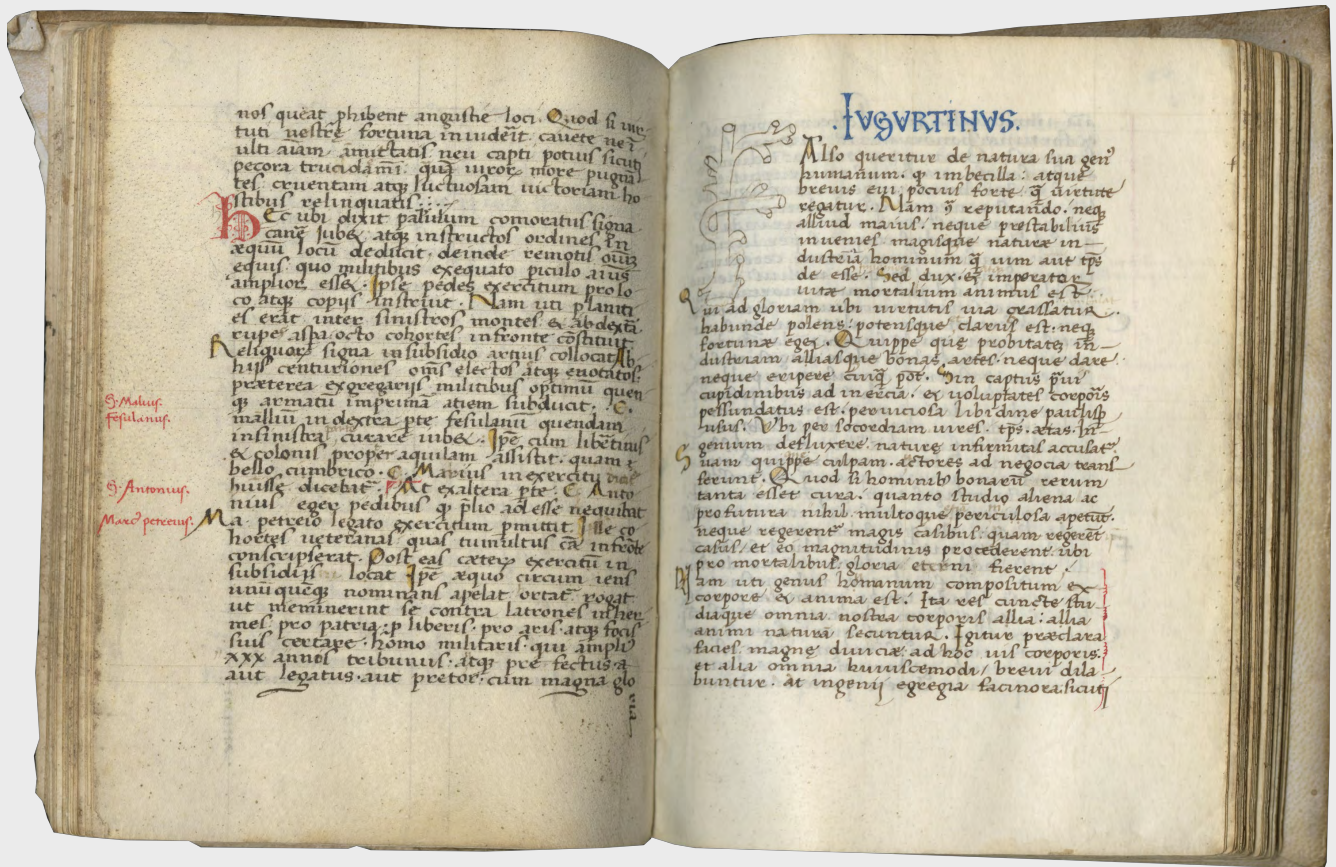 nos queat ꝓhibent angustie loci. Quod si uir-
tuti nestre fortuna inuiderit cauete ne i
ulti aīam amittatis neu capti potius sicuti
pecora trucidam̄i. quā uiror more pugnā
tes. cruentam atq luctuosam uictoriam ho-
stibus relinquatis.
HEc ubi dixit paululum comoratus signa.
canē Iubet atq instructos ordines In
æquū locū deducit. deinde remotis oīuz
equis. quo militibus exequato piculo aīus
amplior esset. Ipse pedes exercitum pro lo
co atq copijs instruit. Nam uti planiti
es erāt inter sinistros montes & ab dextā.
rupe aspa octo cohortes infronte cōstituit.
Reliquorū signa insubsidio artius collocat Ab
hijs centuriones om̄s electos atq euocatos.
præterea exgregarijs militibus optimū quen
q armatū inprimā atiem subducit. C.
malliū in dextra pte fesulanū quendam
in sinistra curare iubet. Ipē cum libertinus
& colonis proper aquilam assistit. quam
bello cumbrico. C. Marius in exercitu
huisse dicebat At exaltera pte. C Anto
nius eger pedibus q plio adesse nequibat
Ma petreio legato exercitum pmittit Ille co-
hortes ueteranas quas tumultus cā infrōte
conscripserat. Post eas cæterū exercitū in
subsidijs locat Ipē æquo circum iens
unūquēq nominans apelat ortat rogat
ut meminerint se contra latrones inher
mes pro patria. p liberis. pro aris. atq focis
suis certare. homo militaris. qui ampli
xxx annos tribunus. atq pre fectus. a
aut legatus. aut pretor. cum magna glo
G. Malius.
fesulanus.
G. Antonius.
Marc petreius.
.IUGURTINUS.
Also queritur de natura sua gen
humanum. q imbecilla: atque
breuis eui pocius forte q uirtute
regatur. Nam 9 reputando. neq
alliud maius. neque prestabilius
inuenies magisque naturæ in-
dustriā hominum q uim aut tps
de esse. Sed dux. & imperator
uitæ mortalium animus est.
Qui ad gloriam ubi uirtutis uia grassatur.
habunde polens: potensque clarus est. neq
fortunæ eget. Quippe que probitate in-
dustriam alliasque bonas artes. neque dare.
neque eripere cuiq pōt. Sin captus praui
cupidinibus ad inercia. & uoluptates corporis
pessundatus est. perniciosa libidine paulisp
usus. Ubi per socordiam uires. tps. ætas. In-
genium defluxere. nature infirmitas accusat
Suam quippe culpam. actores ad negocia trans
ferunt. Quod si hominib bonarū rerum
tanta esset cura. quanto studio aliena ac
profutura nihil. multoque periculosa apetūt.
neque regerent magis casibus. quam regerēt
casus. et eo magnitudinis procederent. ubi
pro mortalibus gloria eterni fierent.
Nam uti genus homanum compositum ex
corpore & anima est. Ita res cuncte stu-
diaque omnia nostra corporis allia. allia
animi naturā secuntur. Igitur præclara
facies. magne diuiciæ. ad hoc uis corporis.
et alia omnia huiuscemodi, breui dila
buntur. at ingenij egregia facinora. sicuti